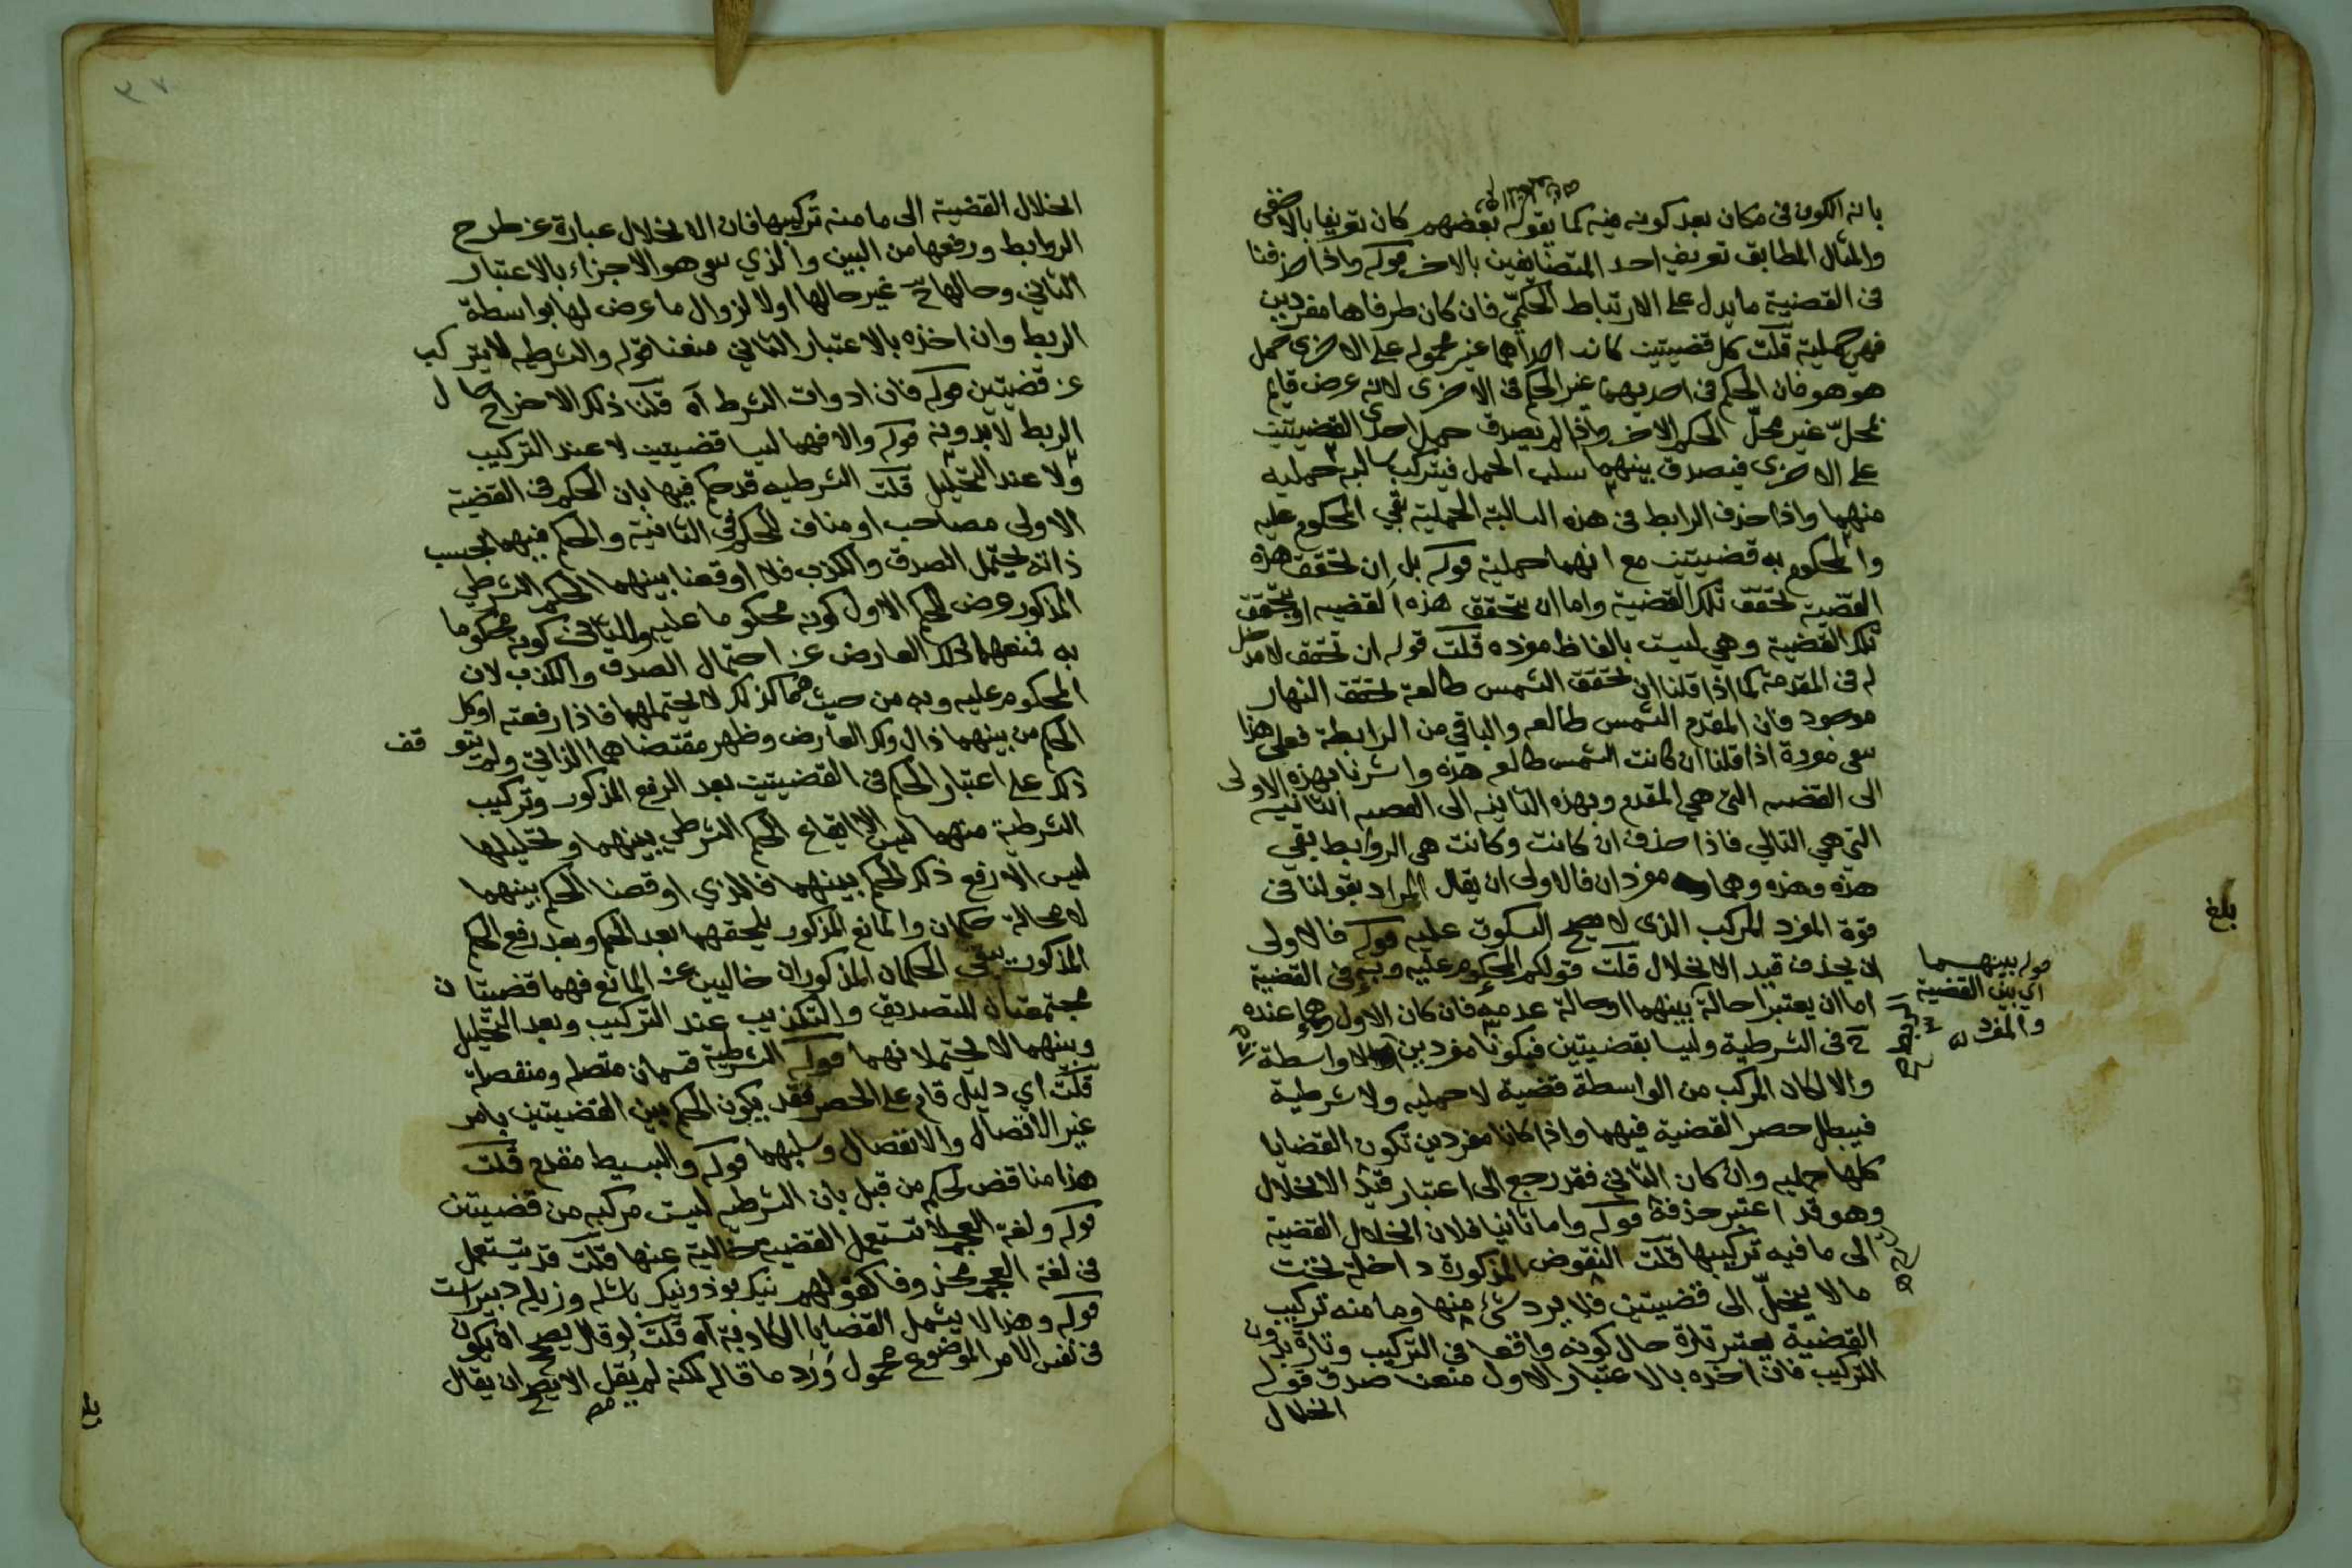 بانه الكون فى مكان بعد كونه فيه كما يقوله بعضهم كان تعريفا بالاخفى
والمثال المطابق تعريف احد المتضايفين بالاخر قوله واذا حذفنا
فى القضية ما يدل على الارتباط الحكمىّ فان كان طرفاها مفردين
فهى حملية قلت كل قضيتين كانت احداهما غير محمولة على الاخرى حمل
هو هو فان الحكم فى احديهما غير الحكم فى الاخرى لانه عرض قايم
بمحلّ غير محلّ الحكم الاخر واذا لم يصدق حمل احدى القضيتين
على الاخرى فيصدق بينهما سلب الحمل فيتركب سالبة حمليه
منهما واذا حذف الرابط فى هذه السالبة الحملية بقي المحكوم عليه
والمحكوم به قضيتين مع انهما حملية قوله بل ان تحقق هذه
القضية تحقق تلك القضية واما ان يتحقق هذه القضيه او يتحقق
تلك القضية وهي ليست بالفاظ مفرده قلت قوله ان تحقق لا مدخل
له فى المقدمة كما اذا قلنا ان تحقق الشمس طالعة تحقق النهار
موجود فان المقدم الشمس طالعه والباقي من الرابطة فعلى هذا
سعى مفردة اذا قلنا ان كانت الشمس طالعه هذه واشرنا بهذه الاولى
الى القضيه التى هي المقدم وبهذه الثانيه الى القضيه الثانيه
التى هي التالي فاذا حذف ان كانت وكانت هى الروابط بقي
هذه وهذه وهما مفردان فالاولى ان يقال المراد بقولنا فى
قوة المفرد المركب الذى لا يصح السكوت عليه قوله فالاولى
ان يحذف قيد الانحلال قلت قولكم المحكوم عليه وبه فى القضية
اما ان يعتبرا حالة بينهما او حالة عدمه فان كان الاول وهما عنده
ح فى الشرطية وليسا بقضيتين فيكونا مفردين ولا واسطة
والا لكان المركب من الواسطة قضية لا حمليه ولا شرطية
فيبطل حصر القضية فيهما واذا كانا مفردين تكون القضايا
كلها حمليه وان كان الثاني فقد رجع الى اعتبار قيد الانحلال
وهو قد اعتبر حذفه قوله واما ثانيا فلان انحلال القضية
الى ما فيه تركيبها قلت النقوض المذكورة داخلة تحت
ما لا ينحلّ الى قضيتين فلا يرد شئ منها وما منه تركيب
القضية يعتبر تارة حال كونه واقعا فى التركيب وتارة بدون
التركيب فان اخذه بالاعتبار الاول منعنا صدق قوله
انحلال
قوله بينهما
اي بين القضية
والمفرد
بلغ
انحلال القضية الى ما منه تركيبها فان الانحلال عبارة عن طرح
الروابط ورفعها من البين والذي سعى هو الاجزاء بالاعتبار
الثاني وحالها ح غير حالها اولا لزوال ما عرض لها بواسطة
الربط وان اخذه بالاعتبار الثاني منعنا قوله والشرطيه لا يتركب
عن قضيتين قوله فان ادوات الشرط آه قلنا ذلك الاخراج حال
الربط لا بدونه قوله والا فهما ليسا قضيتين لا عند التركيب
ولا عند التحليل قلت الشرطيه قد حكم فيها بان الحكم فى القضية
الاولى مصاحب او مناف للحكم فى الثانية والحكم فيهما بحسب
ذاته يحتمل الصدق والكذب فلا اوقعنا بينهما الحكم الشرطي
المذكور عرض للحكم الاول كونه محكوما عليه وللثانى كونه محكوما
به فمنعهما ذلك العارض عن احتمال الصدق والكذب لان
المحكوم عليه وبه من حيث هما كذلك لا يحتملهما فاذا رفعته اوكل
الحكم من بينهما زال ذلك العارض وظهر مقتضاهما الذاتي ولم يتوقف
ذلك على اعتبار الحكم فى القضيتين بعد الرفع المذكور وتركيب
الشرطية منهما ليس الا ايقاع الحكم الشرطي بينهما وتحليلها
ليس الا رفع ذلك الحكم بينهما فالذي اوقعنا الحكم بينهما
لا محالة حكمان والمانع المذكور يلحقهما بعد الحكم وبعد رفع الحكم
المذكور يبقى الحكمان المذكوران خاليين عن المانع فهما قضيتان
مجتمعتان للتصديق والتكذيب عند التركيب وبعد التحليل
وبينهما لا يحتملانهما قوله الشرطية قسمان متصله ومنفصلة
قلت اي دليل قام على الحصر فقد يكون الحكم بين القضيتين بامر
غير الاتصال والانفصال وسلبهما قوله والبسيط مقدم قلت
هذا مناقض لحكم من قبل بان الشرطيه ليست مركبه من قضيتين
قوله ولغة العجم لا تستعمل القضيه خالية عنها قلت قد يستعمل
فى لغة العجم محذوفا كقولهم نيك بوذ ونيك باشد وزيد دبيرست
قوله وهذا لا يشمل القضايا الكاذبة آه قلت لو قال يصح ان يكون
فى نفس الامر الموضوع محمول ورد ما قاله لكنه لم يقل الا يصح ان يقال
بلغ